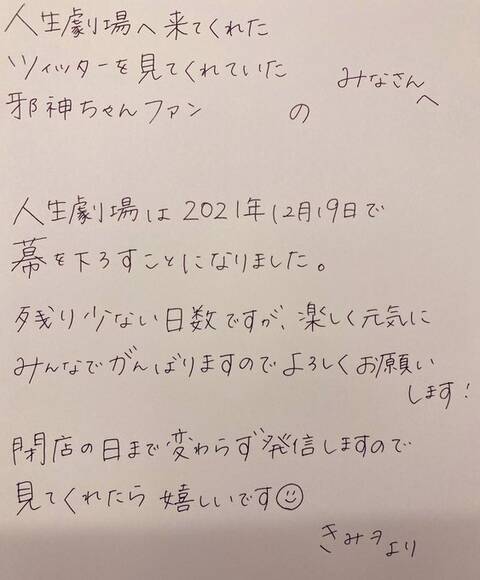 人生劇場へ来てくれた
ツィッターを見てくれていた
邪神ちゃんファン の みなさんへ
人生劇場は2021年12月19日で
幕を下ろすことになりました。
残り少ない日数ですが、楽しく元気に
みんなでがんばりますのでよろしくお願い
します!
閉店の日まで変わらず発信しますので
見てくれたら嬉しいです☺
きみヲより